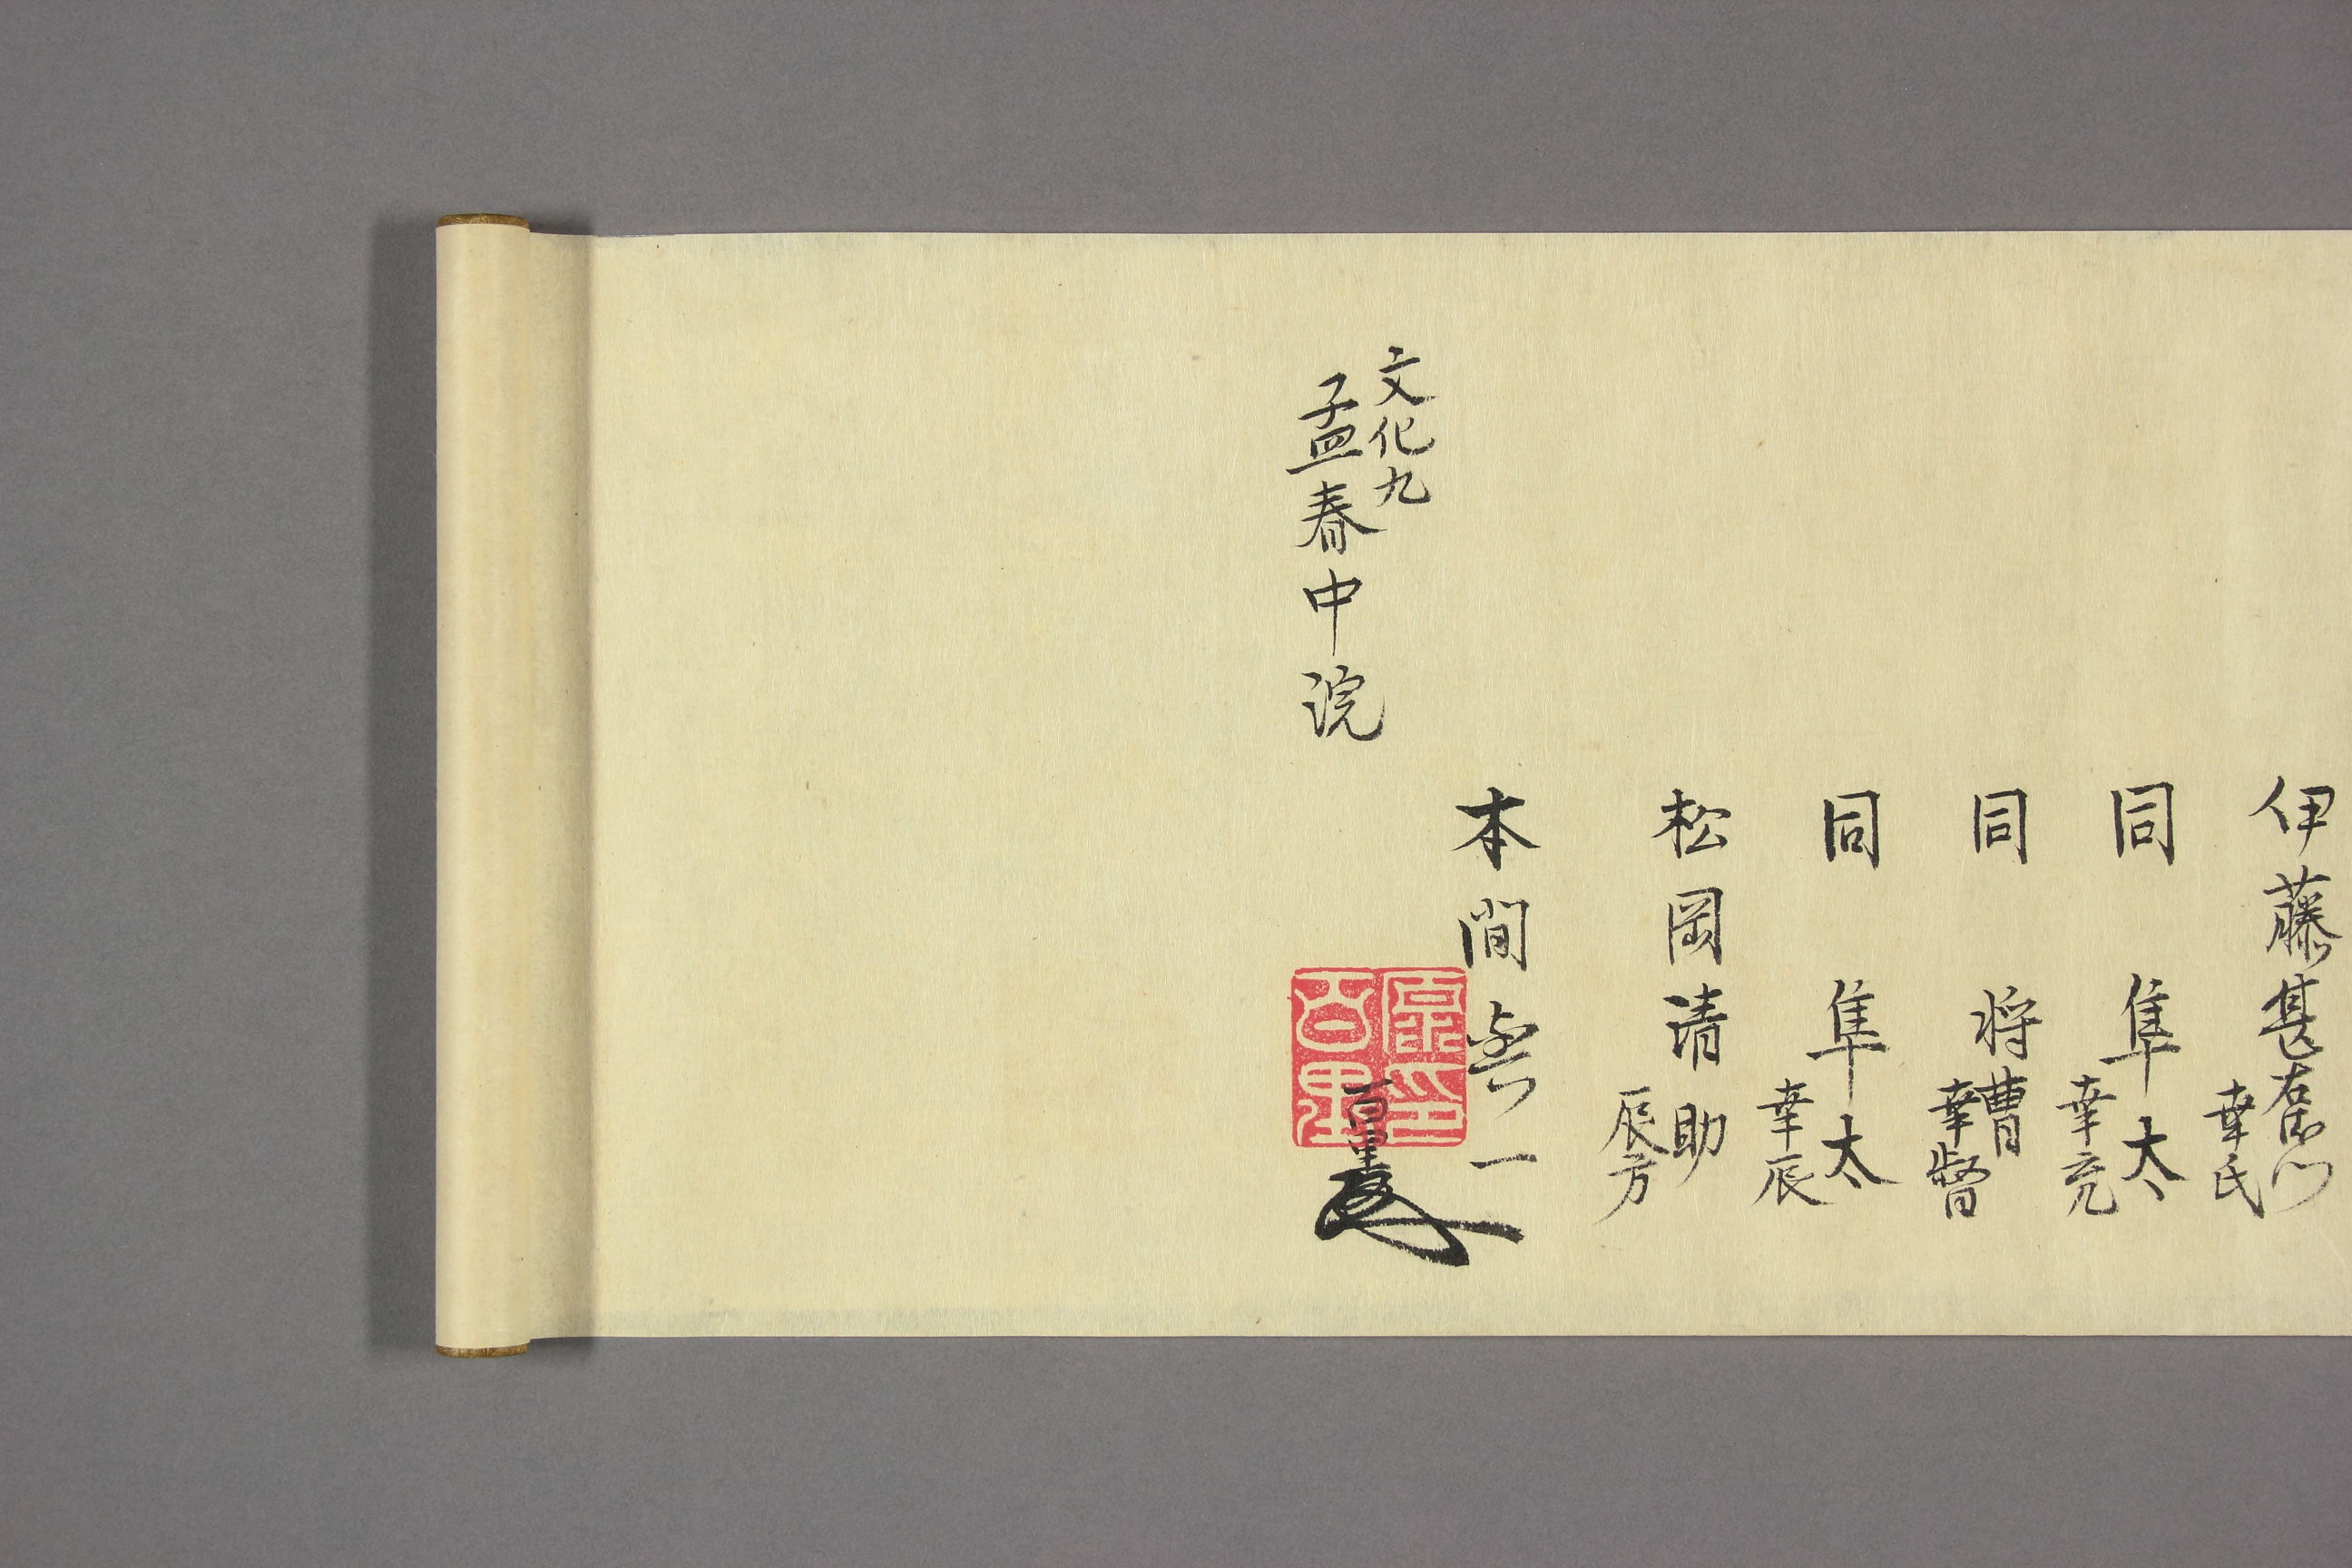 伊藤甚右衛門
幸氏
同 隼太
幸充
同 将曹
幸督
同 隼太
幸辰
松岡清助
辰方
本間
一
百里
文化九
孟春中浣